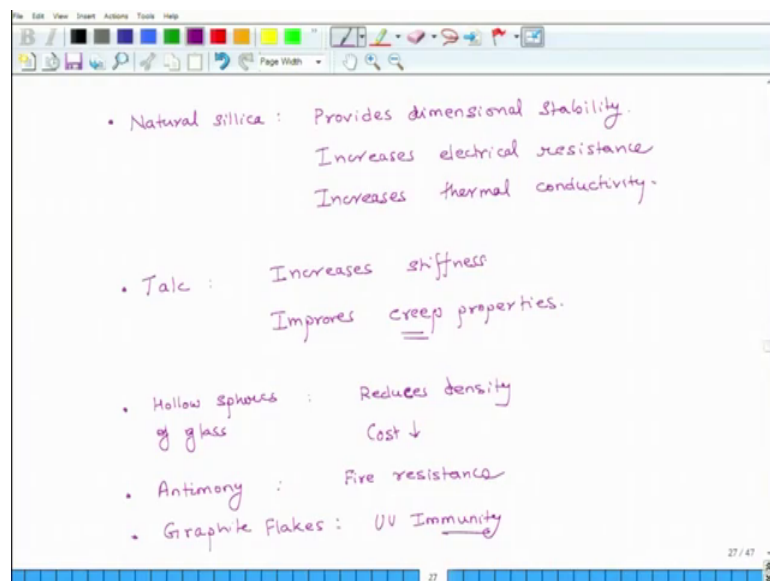 File Edit View Insert Actions Tools Help
B I Page Width
• Natural sillica : Provides dimensional stability.
Increases electrical resistance
Increases thermal conductivity.
• Talc : Increases stiffness
Improves creep properties.
• Hollow spheres : Reduces density
of glass Cost ↓
• Antimony : Fire resistance
• Graphite Flakes : UV Immunity
27 / 47
27